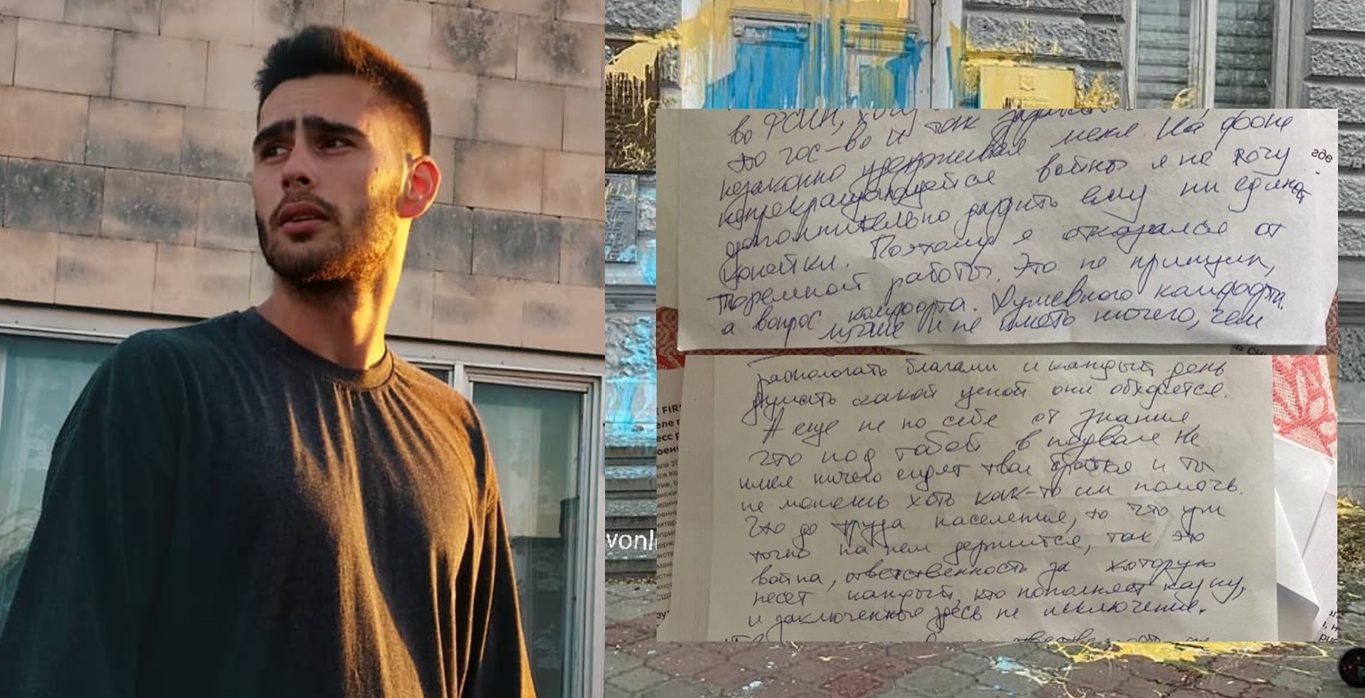 во ФСИН, хочу
то гос-во и так
незаконно удерживая меня. На фоне
непрекращающейся войны я не хочу
дополнительно дарить ему ни единой
копейки. Поэтому я отказался от
тюремной работы. Это не принцип,
а вопрос комфорта. Душевного комфорта.
лучше и не иметь ничего, чем
распологать благами и каждый день
думать какой ценой они обходятся.
А еще не по себе от знания
что под тобой в подвале не
имея ничего сидят твои братья и ты
не можешь хоть как-то им помочь.
Что до труда населения, то что уж
точно на нем держится, так это
война, ответственность за которую
несет каждый, кто пополняет казну,
и заключенные здесь не исключение.
где
vonl